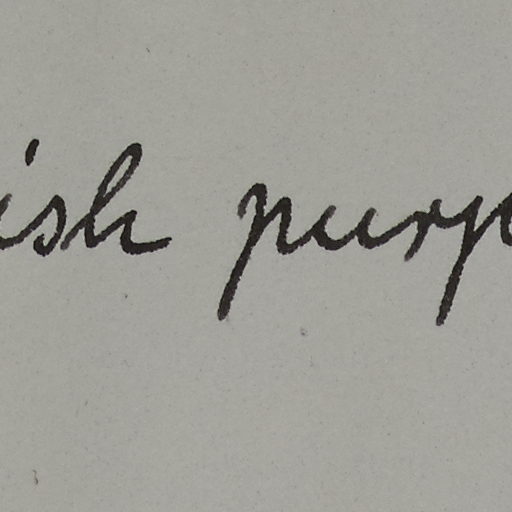 ish purp